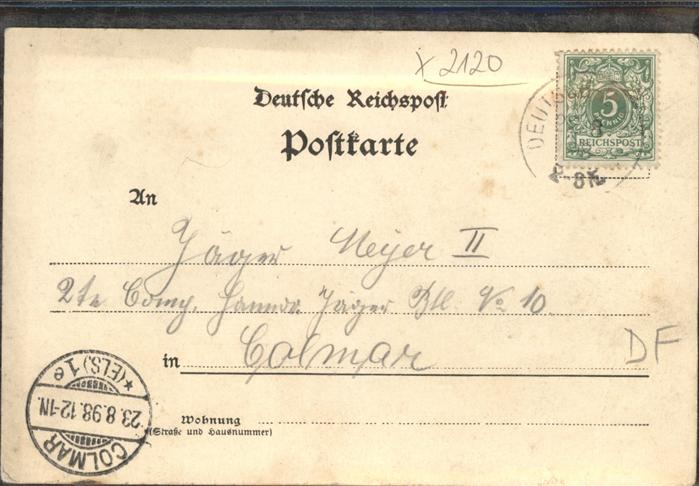 x 2120
Deutsche Reichspost
Postkarte
5
REICHSPOST
8-8N.
An
Jäger Meyer II
2te Comp. Hannov. Jäger Btl. No 10.
in Colmar
DF
COLMAR
*(ELS) 1e
23.8.98.12-1N.
Wohnung
(Straße und Hausnummer)